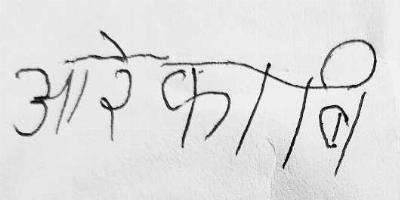 आरेकाबि